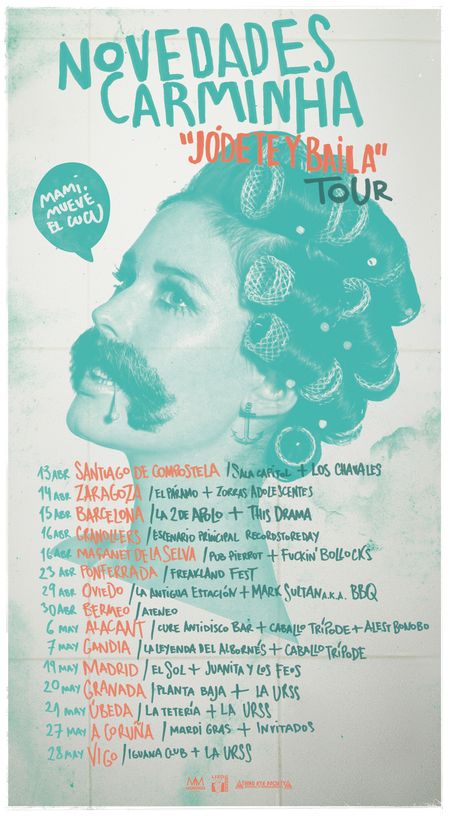 NOVEDADES
CARMINHA
"JÓDETE Y BAILA"
TOUR
MAMI,
MUEVE
EL CUCU
13 ABR SANTIAGO DE COMPOSTELA / SALA CAPITOL + LOS CHAVALES
14 ABR ZARAGOZA / EL PÁRAMO + ZORRAS ADOLESCENTES
15 ABR BARCELONA / LA 2 DE APOLO + THIS DRAMA
16 ABR GRANOLLERS / ESCENARIO PRINCIPAL RECORDSTOREDAY
16 ABR MAÇANET DE LA SELVA / PUB PIERROT + FUCKIN' BOLLOCKS
23 ABR PONFERRADA / FREAKLAND FEST
29 ABR OVIEDO / LA ANTIGUA ESTACIÓN + MARK SULTAN A.K.A. BBQ
30 ABR BERMEO / ATENEO
6 MAY ALACANT / CURE ANTIDISCO BAR + CABALLO TRÍPODE + ALEST BONOBO
7 MAY GANDIA / LA LEYENDA DEL ALBORNÉS + CABALLO TRÍPODE
19 MAY MADRID / EL SOL + JUANITA Y LOS FEOS
20 MAY GRANADA / PLANTA BAJA + LA URSS
21 MAY ÚBEDA / LA TETERÍA + LA URSS
27 MAY A CORUÑA / MARDI GRAS + INVITADOS
28 MAY VIGO / IGUANA CLUB + LA URSS